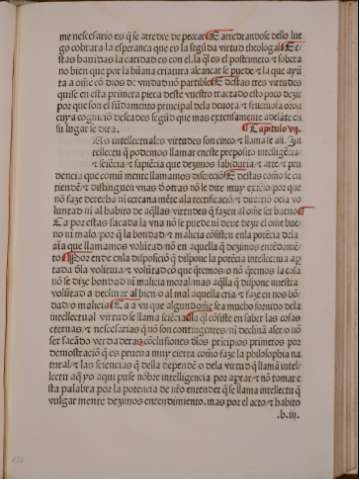 me nescesario es q̃ se atreve de peccar Et arredrandose dello lue
go cobrara la esperança que es la segũda virtud theologal Et e
stas hauidas la caridad es con el. la q̃l es el postrimero ⁊ sobera
no bien que por la hũana criatura alcançar se puede ⁊ la que ayũ
ta a õne cõ dios de vnidad nõ partible Et destas tres virtudes
quise en esta primera pieça deste vuestro tractado esto poco dezir
por que son el fũdamento principal dela deuota ⁊
cuya cognicio deseades segũd que mas extensamente adelãte en
su lugar se dira.
Capitulo vij.
Elas intellectuales virtudes son cinco ⁊ llamase asi. In
tellectu q̃ podemos llamar eneste proposito intelligẽcia
⁊ sciẽcia ⁊ sapiẽcia que dezimos sabiduria ⁊ arte ⁊ pru
dencia que comũ mente llamamos discreciõ Et destas como se en
tienden ⁊ distinguen vnas de otras nõ le dire muy por que
nõ faze derecha ni cercana mẽte ala rectificaciõ ⁊ dela vo
luntad ni al habito de aq̃llas virtudes q̃ fazen al õne ser bueno
Ca por estas sacada la vna nõ se puede ni deve dezir el õne bue
no ni malo por q̃ la bondad ⁊ malicia cõsisten enla potẽcia dela
aĩa que llamamos volũtad nõ en aquella q̃ dezimos entẽdimiẽ
to Por ende enla disposiciõ q̃ dispone la potẽcia intellectiua ap
tada dla volũtad ⁊ volũtad cõ que q̃remos o nõ q̃remos la cosa
nõ se dize bondad ni malicia moral mas aq̃lla q̃ dispone nuestra
volũtad a declinar al bien o al mal aquella cria ⁊ faze en nos bõ
dad o malicia Ca a vn que algund õne sea mucho fornido dela
intellectual virtud se llama sciẽcia la q̃l cõsiste en saber las cosas
eternas ⁊ nescessarias q̃ nõ son contingentes ni declinã a ser o nõ
ser sacãdo verdaderas cõclusiones dlos prĩcipios primeros por
demostraciõ q̃ es prueua muy cierta como faze la philosophia na
tural ⁊ las sciencias q̃ della dependẽ o dela virtud q̃ llamã intel
lectu aq̃ yo aqui puse nõbre intelligencia por aptar ⁊ nõ tomar e
sta palabra por la potencia de nr̃o entender q̃ se llama intellectu q̃
vulgar mente dezimos entendimiento. mas por el acto ⁊ habito
.b.iij.